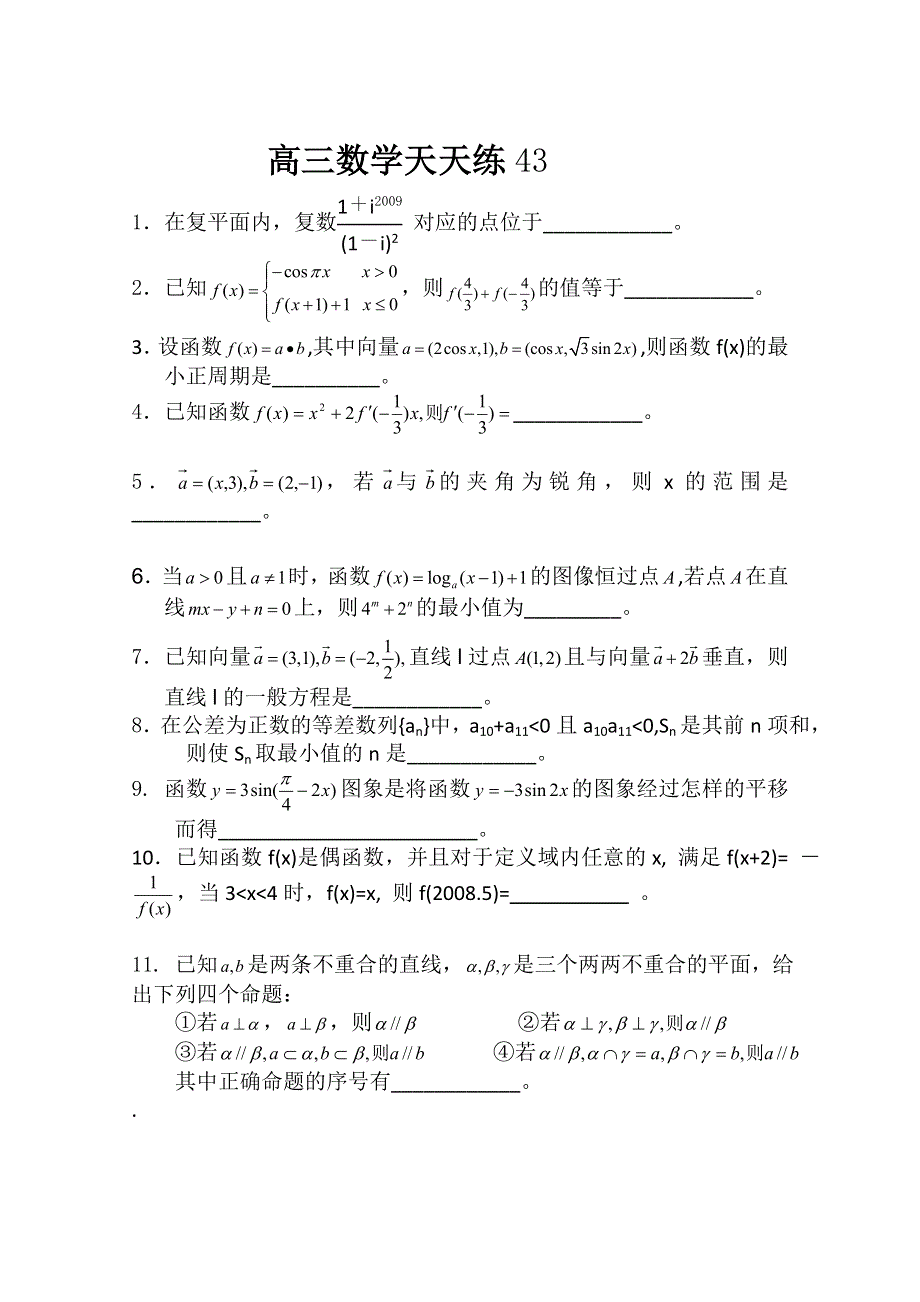 高三数学天天练 43
1．在复平面内，复数\frac{1＋i^{2009}}{(1－i)^2} 对应的点位于____________。
2．已知 f(x)=\begin{cases}-\cos\pi x & x>0\\ f(x+1)+1 & x\le 0\end{cases}，则 f(\frac{4}{3})+f(-\frac{4}{3}) 的值等于____________。
3．设函数 f(x)=a•b,其中向量 a=(2cos x,1),b=(cos x,\sqrt{3}sin 2x),则函数 f(x)的最
小正周期是__________。
4．已知函数 f(x)=x^2+2f′(-\frac{1}{3})x,则f′(-\frac{1}{3})=____________。
5．\vec{a}=(x,3),\vec{b}=(2,-1)，若 \vec{a} 与 \vec{b} 的夹角为锐角，则 x 的范围是
____________。
6．当 a>0 且 a≠1 时，函数 f(x)=log_a(x-1)+1 的图像恒过点 A,若点 A 在直
线 mx-y+n=0 上，则 4^m+2^n 的最小值为_________。
7．已知向量 \vec{a}=(3,1),\vec{b}=(-2,\frac{1}{2}),直线 l 过点 A(1,2) 且与向量 \vec{a}+2\vec{b} 垂直，则
直线 l 的一般方程是____________。
8．在公差为正数的等差数列{a_n}中，a_{10}+a_{11}<0 且 a_{10}a_{11}<0,S_n 是其前 n 项和，
则使 S_n 取最小值的 n 是____________。
9. 函数 y=3sin(\frac{π}{4}-2x) 图象是将函数 y=-3sin 2x 的图象经过怎样的平移
而得________________________。
10．已知函数 f(x)是偶函数，并且对于定义域内任意的 x, 满足 f(x+2)= －
\frac{1}{f(x)}，当 3<x<4 时，f(x)=x, 则 f(2008.5)=___________ 。
11. 已知 a,b 是两条不重合的直线，α,β,γ 是三个两两不重合的平面，给
出下列四个命题：
①若 a⊥α，a⊥β，则 α//β ②若 α⊥γ,β⊥γ,则α//β
③若 α//β,a⊂α,b⊂β,则a//b ④若 α//β,α∩γ=a,β∩γ=b,则a//b
其中正确命题的序号有____________。
.